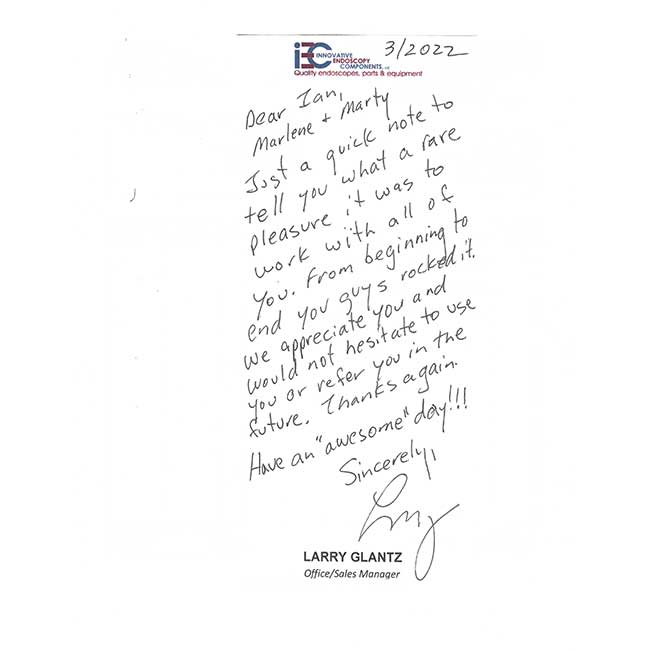 3/2022
iEC INNOVATIVE
ENDOSCOPY
COMPONENTS, LLC
Quality endoscopes, parts & equipment
Dear Ian,
Marlene + Marty
Just a quick note to
tell you what a rare
pleasure it was to
work with all of
you. From beginning to
end you guys rocked it.
We appreciate you and
would not hesitate to use
you or refer you in the
future. Thanks again.
Have an "awesome" day!!!
Sincerely,
Larry
LARRY GLANTZ
Office/Sales Manager